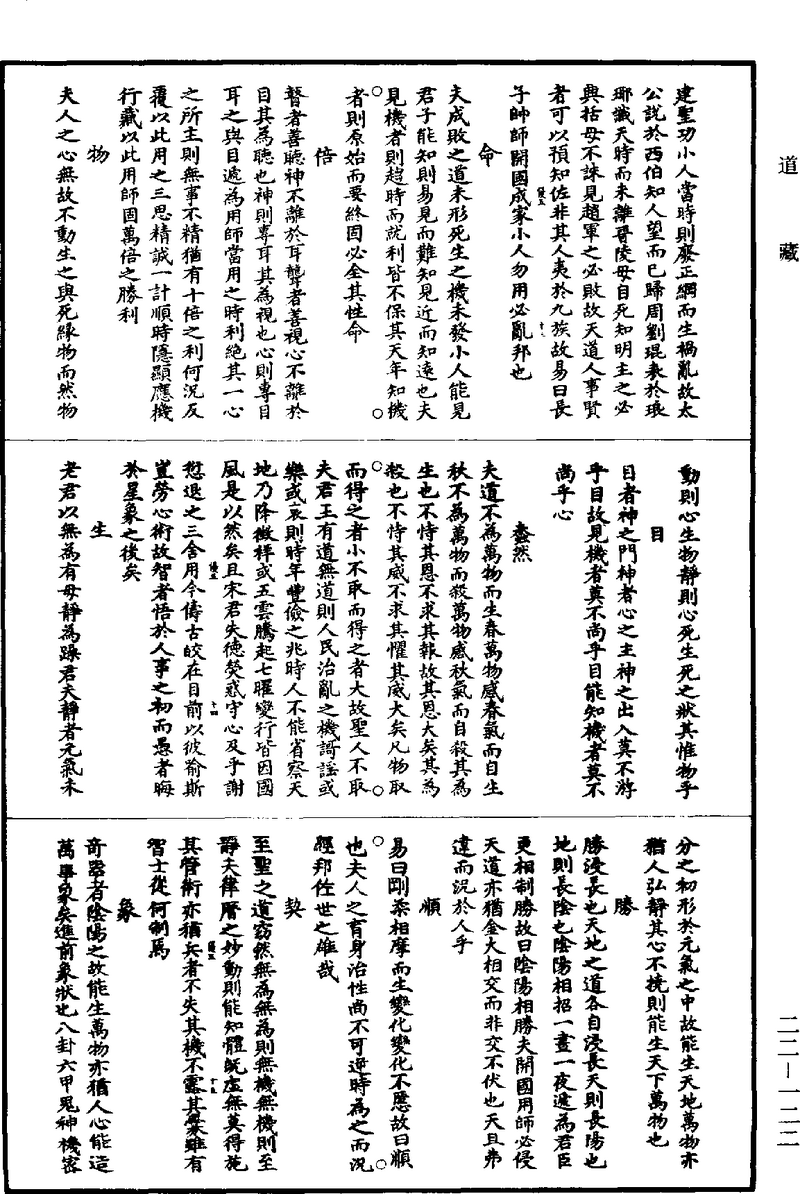 道藏
建聖功小人當時則廢正綱而生禍亂故太
公説於西伯知人望而已歸周劉琨表於琅
瑯識天時而未離晉陵母自死知明主之必
興括母不誅見趙軍之必敗故天道人事賢
者可以預知佐非其人夷於九族故易曰長
子帥師開國成家小人勿用必亂邦也
命
夫成敗之道未形死生之機未發小人能見
君子能知則易見而難知見近而知遠也夫
見機者則趨時而就利皆不保其天年知機
者則原始而要終固必全其性命
倍
瞽者善聽神不離於耳聾者善視心不離於
目其為聽也神則專耳其為視也心則專目
耳之與目遞為用師當用之時利絕其一心
之所主則無事不精猶有十倍之利何況反
覆以此用之三思精誠一計順時隱顯應機
行藏以此用師固萬倍之勝利
物
夫人之心無故不動生之與死緣物而然物
動則心生物靜則心死生死之狀其惟物乎
目
目者神之門神者心之主神之出入莫不游
乎目故見機者莫不尚乎目能知機者莫不
尚乎心
蠢然
夫道不為萬物而生春萬物感春氣而自生
秋不為萬物而殺萬物感秋氣而自殺其為
生也不恃其恩不求其報故其恩大矣其為
殺也不恃其威不求其懼其威大矣凡物取
而得之者小不取而得之者大故聖人不取
夫君王有道無道則人民治亂之機謌謠或
樂或哀則時年豐儉之兆時人不能省察天
地乃降徵祥或五雲騰起七曜變行皆因國
風是以然矣且宋君失德熒惑守心及乎謝
愆退之三舍用今儔古皎在目前以彼喻斯
豈勞心術故智者悟於人事之初而愚者晦
於星象之後矣
生
老君以無為有母靜為躁君夫靜者元氣未
分之初形於元氣之中故能生天地萬物亦
猶人弘靜其心不撓則能生天下萬物也
勝
勝浸長也天地之道各自浸長天則長陽也
地則長陰也陰陽相招一晝一夜遞為君臣
更相制勝故曰陰陽相勝夫開國用師必侵
天道亦猶金火相交而非交不伏也天且弗
違而況於人乎
順
易曰剛柔相摩而生變化變化不忒故曰順
也夫人之育身治性尚不可逆時為之而況
經邦佐世之雄哉
契
至聖之道窈然無為無為則無機無機則至
靜夫律曆之妙動則能知體既虛無莫得施
其管術亦猶兵者不失其機不露其象雖有
智士從何制焉
象
奇器者陰陽之故能生萬物亦猶人心能造
萬畢象矣進前象狀也八卦六甲鬼神機密
二二—一二二